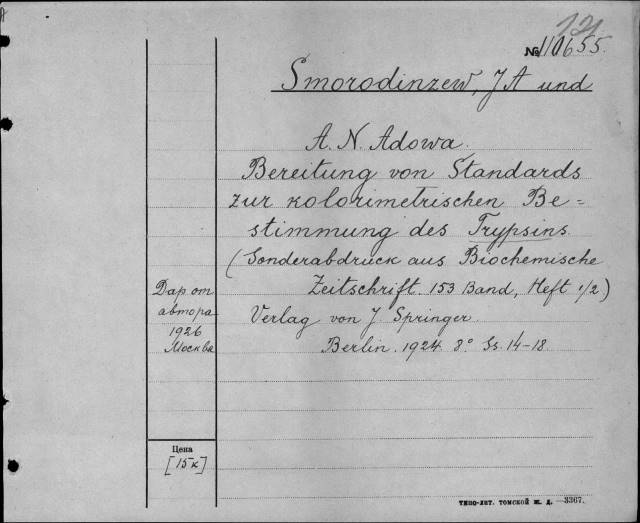 121
№ 110655.
Smorodinzew, JA und
A. N. Adowa.
Bereitung von Standards
zur kolorimetrischen Be=
stimmung des Trypsins.
(Sonderabdruck aus Biochemische
Zeitschrift. 153 Band, Heft 1/2)
Verlag von J. Springer.
Berlin. 1924. 8° Ss. 14-18.
Дар от
автора
1926
Москва
Цена
[15к]
ТИПО-ЛИТ. ТОМСКОЙ Ж. Д. —3367.